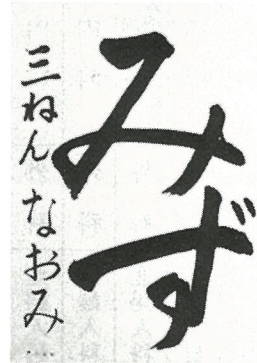 みず
三ねん なおみ